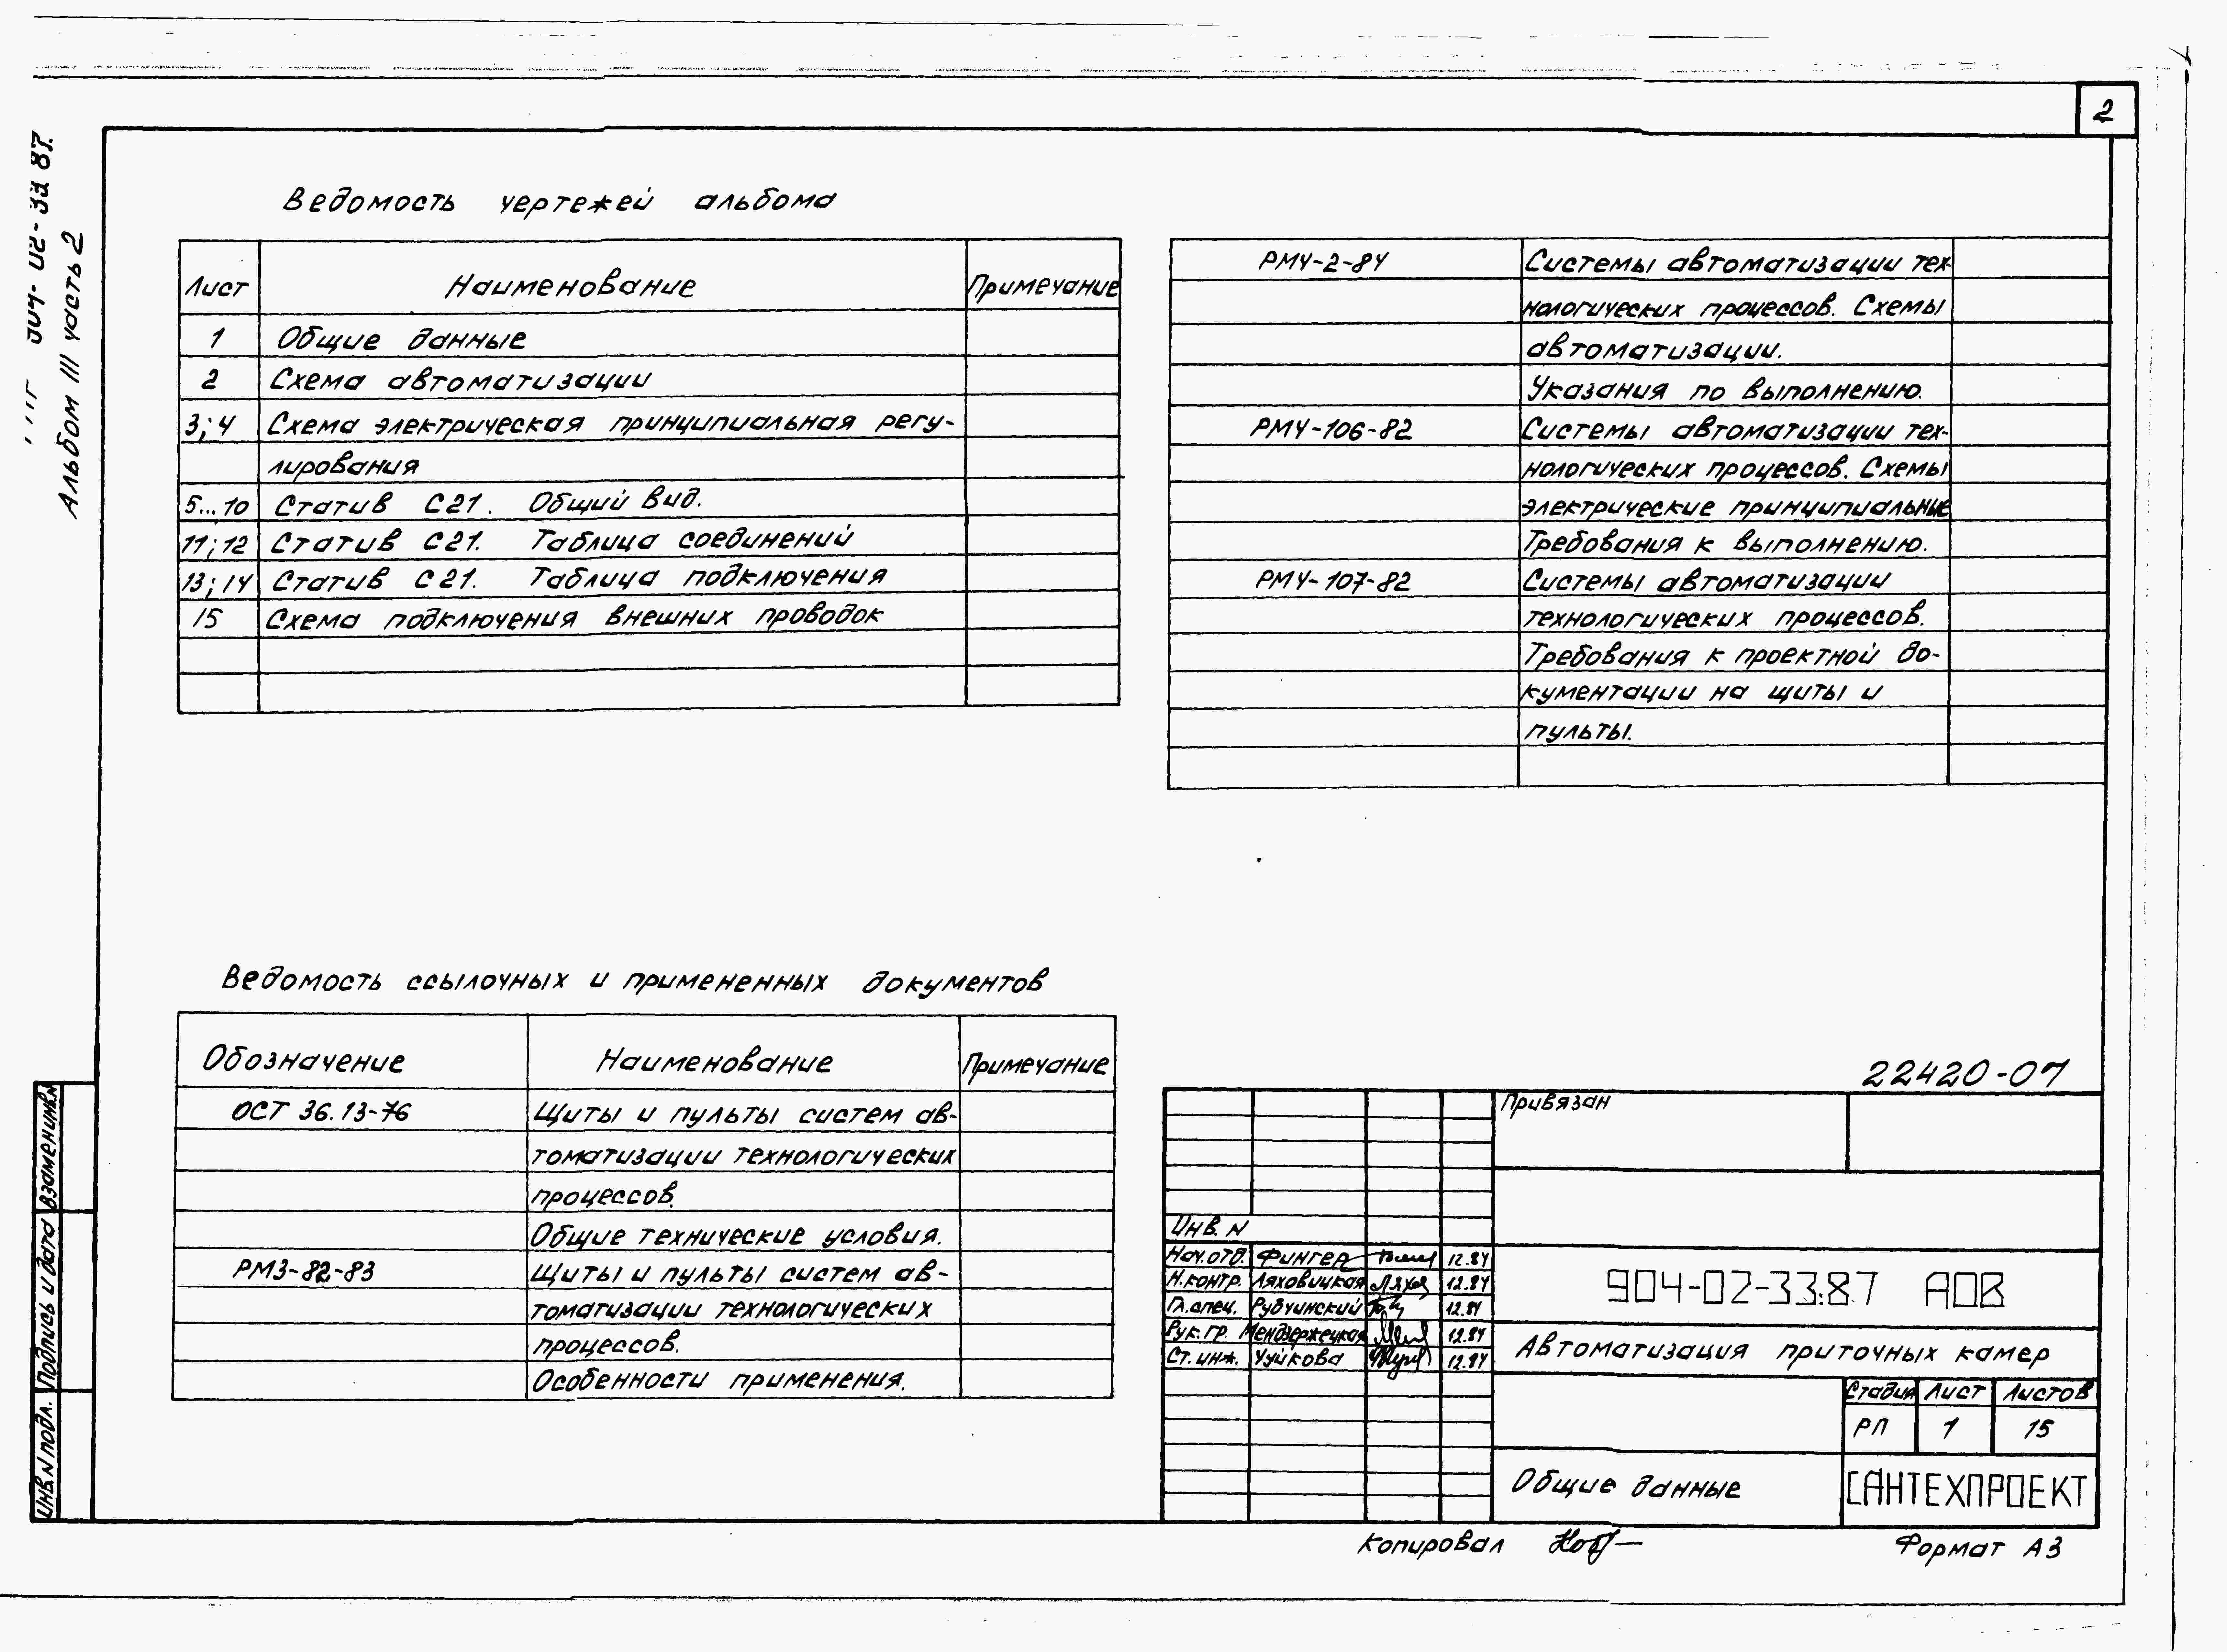 2
904-02-33.87.
Альбом III часть 2
Ведомость чертежей альбома
Лист Наименование Примечание
1 Общие данные
2 Схема автоматизации
3; 4 Схема электрическая принципиальная регу-
лирования
5...10 Статив С21. Общий вид.
11; 12 Статив С21. Таблица соединений
13; 14 Статив С21. Таблица подключения
15 Схема подключения внешних проводок
РМ4-2-84 Системы автоматизации тех-
нологических процессов. Схемы
автоматизации.
Указания по выполнению.
РМ4-106-82 Системы автоматизации тех-
нологических процессов. Схемы
электрические принципиальные
Требования к выполнению.
РМ4-107-82 Системы автоматизации
технологических процессов.
Требования к проектной до-
кументации на щиты и
пульты.
Ведомость ссылочных и примененных документов
Обозначение Наименование Примечание
ОСТ 36.13-76 Щиты и пульты систем ав-
томатизации технологических
процессов.
Общие технические условия.
РМ3-82-83 Щиты и пульты систем ав-
томатизации технологических
процессов.
Особенности применения.
22420-07
Привязан
Инв. N
Нач. отд. Фингер 12.84
Н. контр. Ляховицкая 12.84
Гл. спец. Рубчинский 12.84
Рук. гр. Мендзержецкая 12.84
Ст. инж. Чуйкова 12.84
904-02-33.87 АОВ
Автоматизация приточных камер
Стадия Лист Листов
РП 1 15
Общие данные
САНТЕХПРОЕКТ
Взамен инв. N
Подпись и дата
Инв. N подл.
Копировал
Формат А3